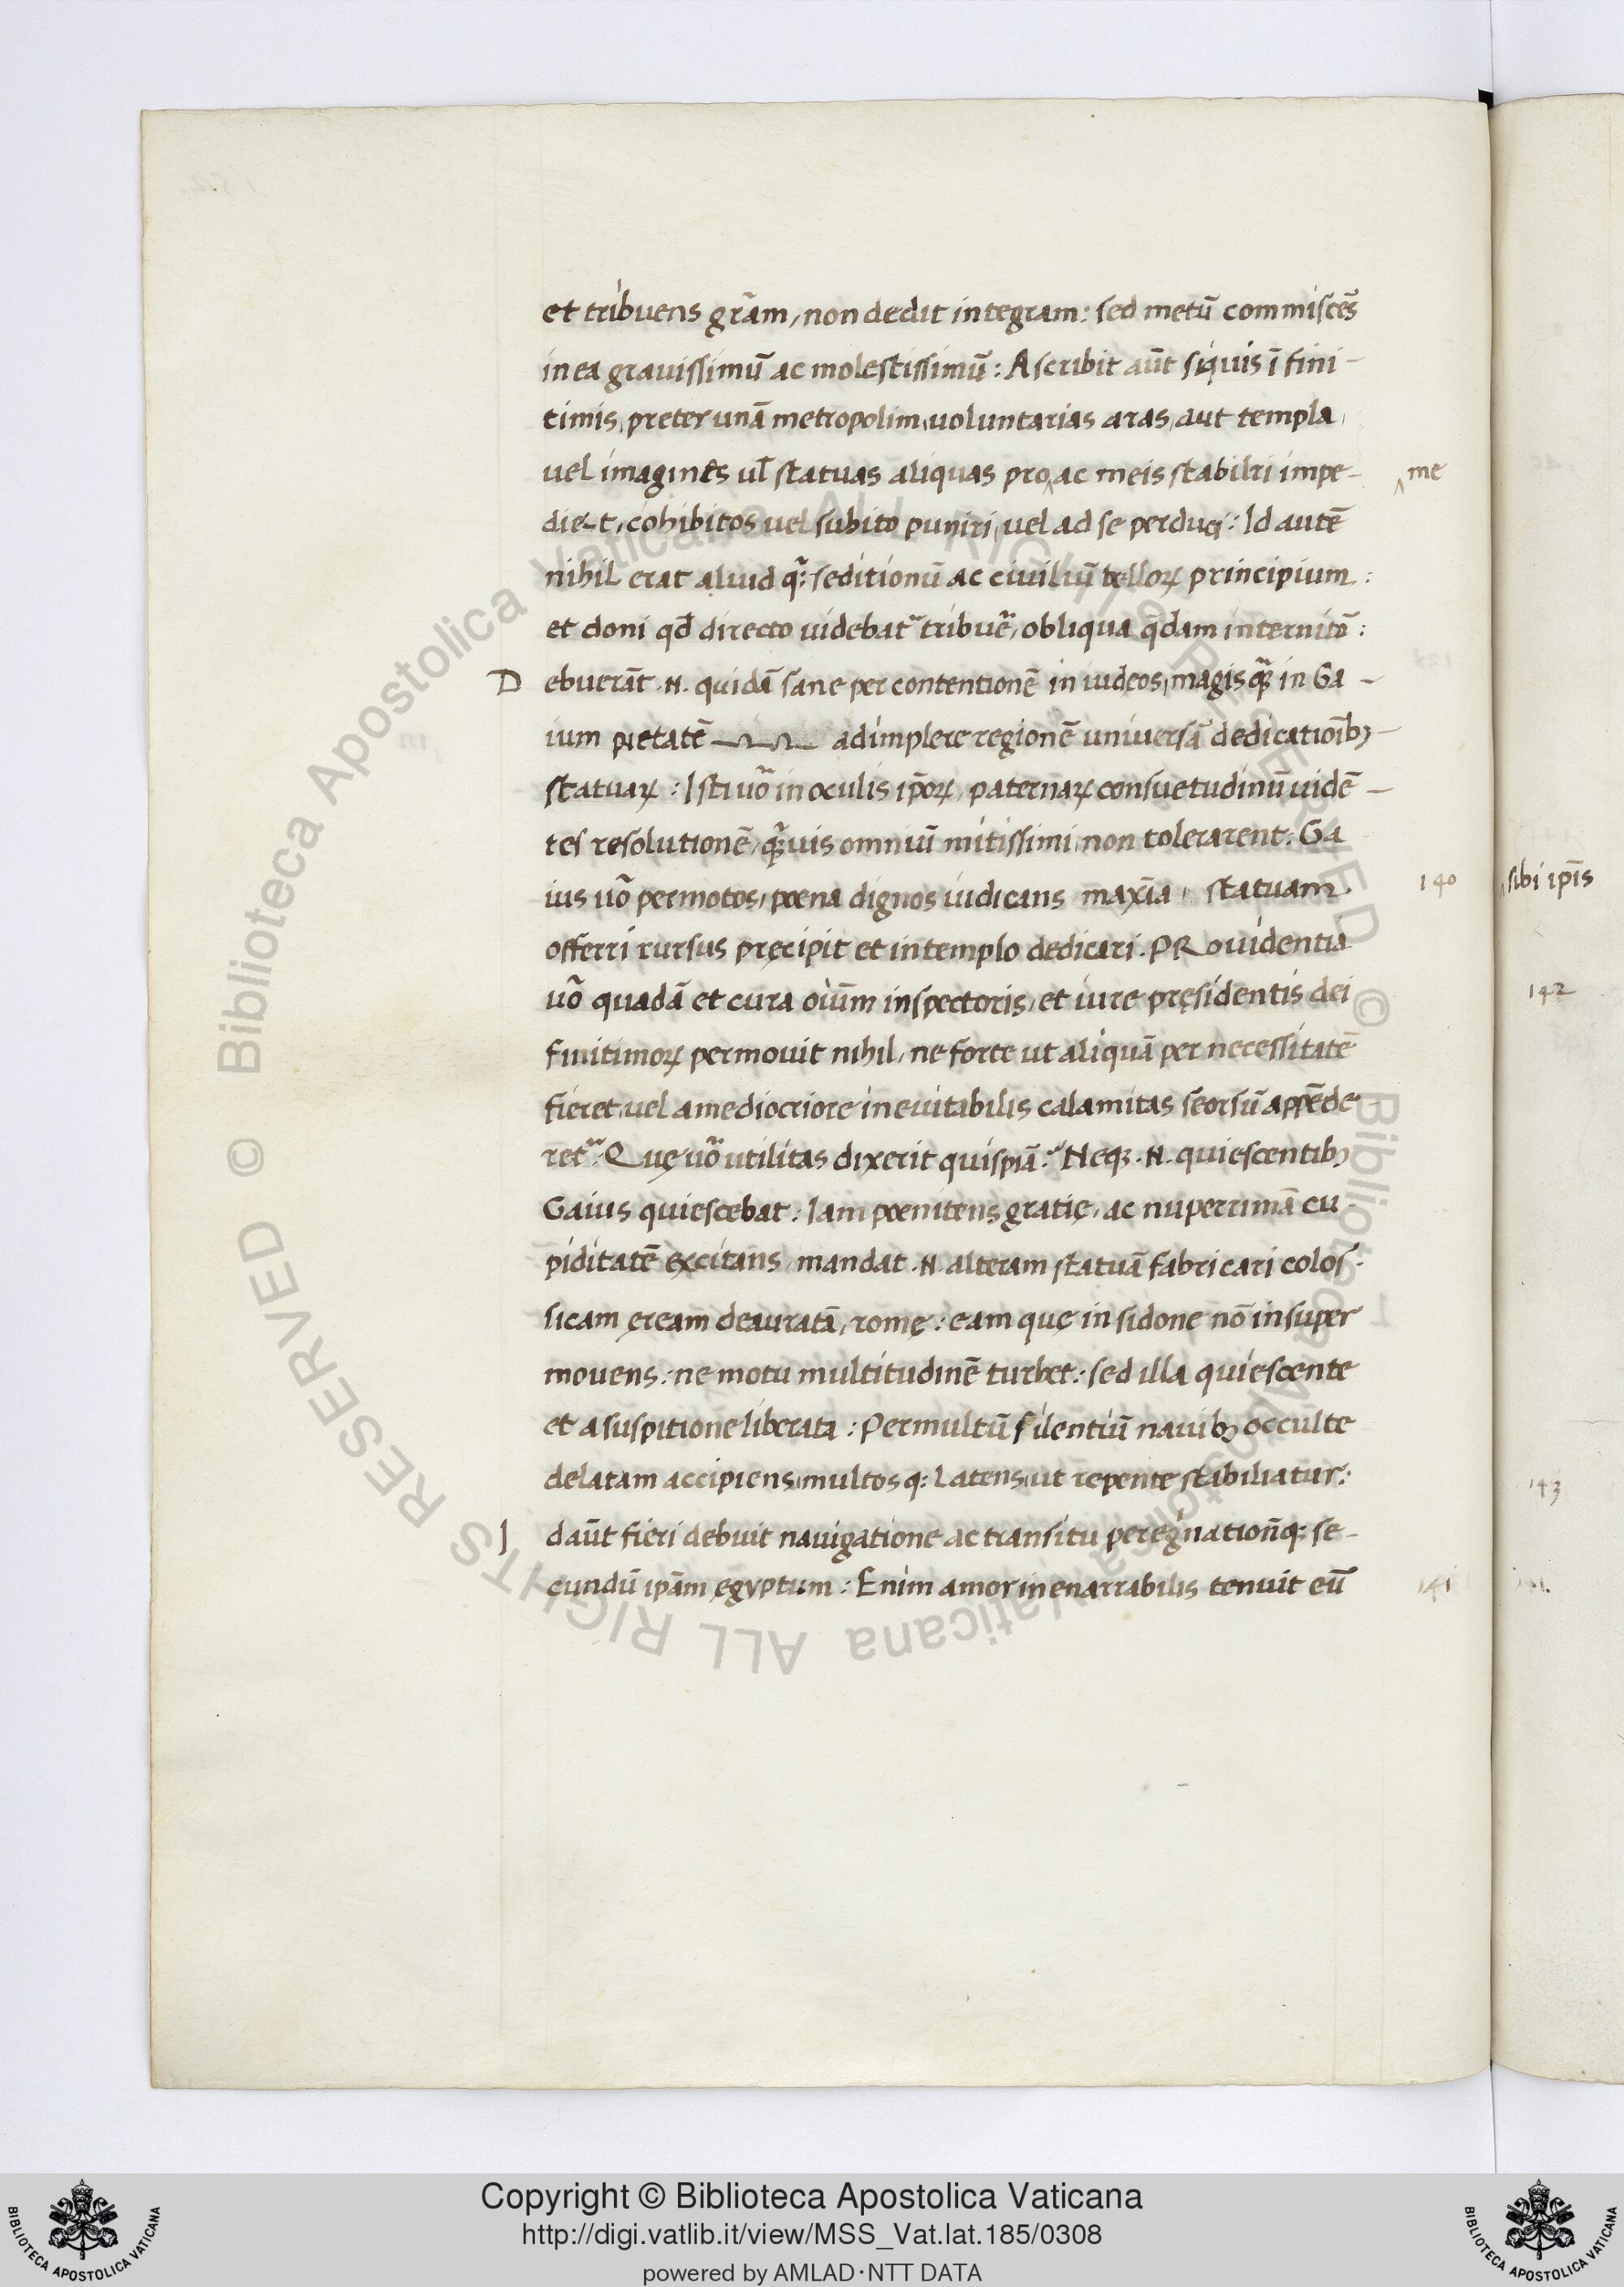 et tribuens grãm, non dedit integram: sed metũ commiscẽs
in ea grauissimũ ac molestissimũ: Ascribit aũt siquis ĩ fini-
timis, preter unã metropolim, uoluntarias aras, aut templa,
uel imagines ul̃ statuas aliquas pro ^ ac meis stabiliri impe-
^ me
diet, cohibitos uel subito puniri, uel ad se perduci: Id autẽ
nihil erat aliud q̃: seditionũ ac ciuiliũ belloꝝ principium:
et doni qđ directo uidebat᷑ tribuẽ, obliqua q̃dam internitõ:
Debuerãt .N. quidã sane per contentionẽ in iudęos, magis ꝙ̃ in Ga-
ium pietatẽ adimplere regionẽ uniuersã dedicatioĩbꝫ
statuaꝝ: Isti uõ in oculis ip̃oꝝ, paternaꝝ consuetudinũ uidẽ-
tes resolutionẽ, ꝙ̃uis omniũ mitissimi, non tolerarent: Ga
ius uõ permotos, poena dignos iudicans maxĩa, statuam
140
^ sibi ip̃is
offerri rursus pręcipit et in templo dedicari. PRouidentia
uõ quadã et cura oĩum inspectoris, et iure pręsidentis dei
142
finitimoꝝ permouit nihil, ne forte ut aliquã per necessitatẽ
fieret, uel a mediocriore ineuitabilis calamitas seorsũ appẽde
ret᷑: Quę uõ utilitas dixerit quispiã: Neqꝫ .N. quiescentibꝫ
Gaius quiescebat: Iam poenitens gratię, ac nuperrimã cu
piditatẽ excitans, mandat .N. alteram statuã fabricari colos-
sicam ęream deauratã, romę: eam quę in sidone nõ insuper
mouens: ne motu multitudinẽ turbet: sed illa quiescente
et a suspitione liberata: Permultũ silentiũ nauibꝫ occulte
delatam accipiens, multos qꝫ: latens, ut repente stabiliatur:
143
Id aũt fieri debuit nauigatione ac transitu peregr̃inationẽqꝫ se-
cundũ ip̃am ęgyptum: Enim amor inenarrabilis tenuit eũ
141
Copyright © Biblioteca Apostolica Vaticana
http://digi.vatlib.it/view/MSS_Vat.lat.185/0308
powered by AMLAD·NTT DATA
BIBLIOTECA APOSTOLICA VATICANA
BIBLIOTECA APOSTOLICA VATICANA
© Biblioteca Apostolica Vaticana ALL RIGHTS RESERVED © Biblioteca Apostolica Vaticana ALL RIGHTS RESERVED